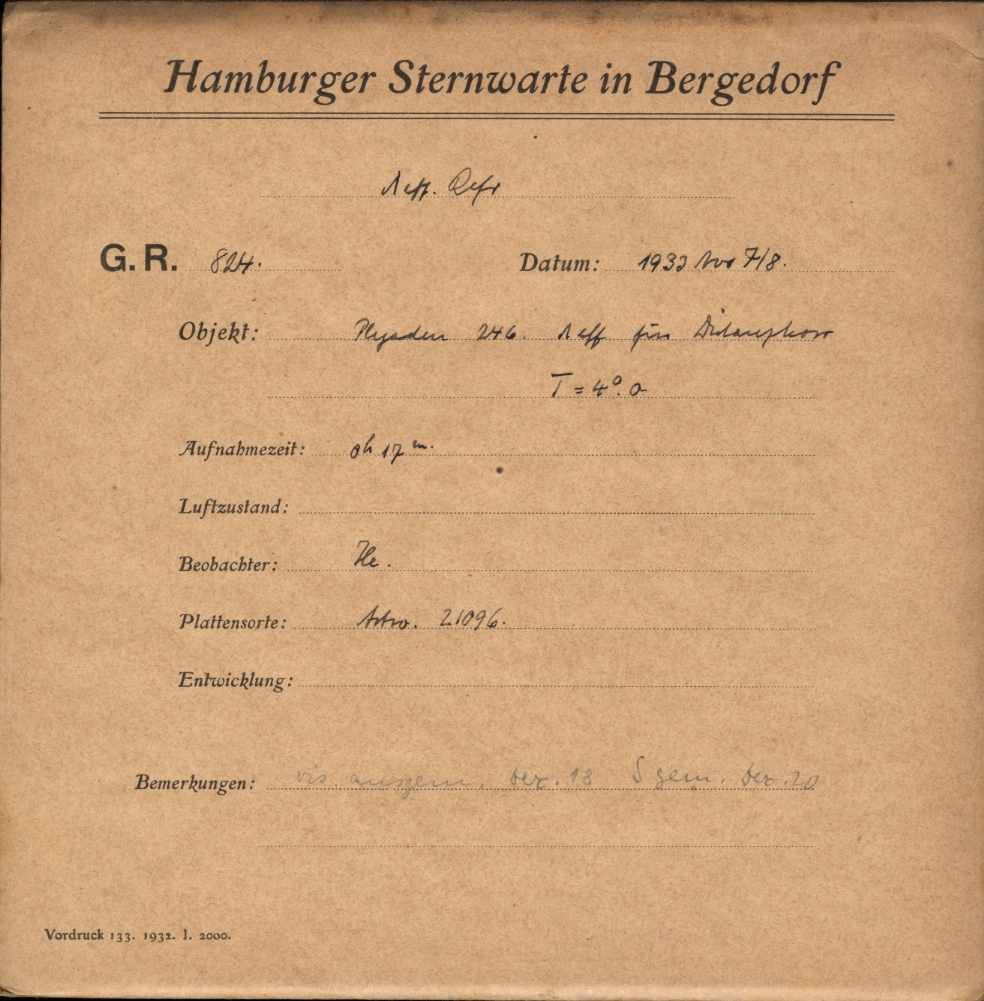 Hamburger Sternwarte in Bergedorf
Refr
G. R. 824. Datum: 1933 Nov 7/8.
Objekt: Plejaden 246. für
T = 4°.0
Aufnahmezeit: 0h 17m.
Luftzustand:
Beobachter: He.
Plattensorte: Astro. 21096.
Entwicklung:
Bemerkungen: vis ausgem. Dez. 18 S gem. Dez. 20
Vordruck 133. 1932. I. 2000.